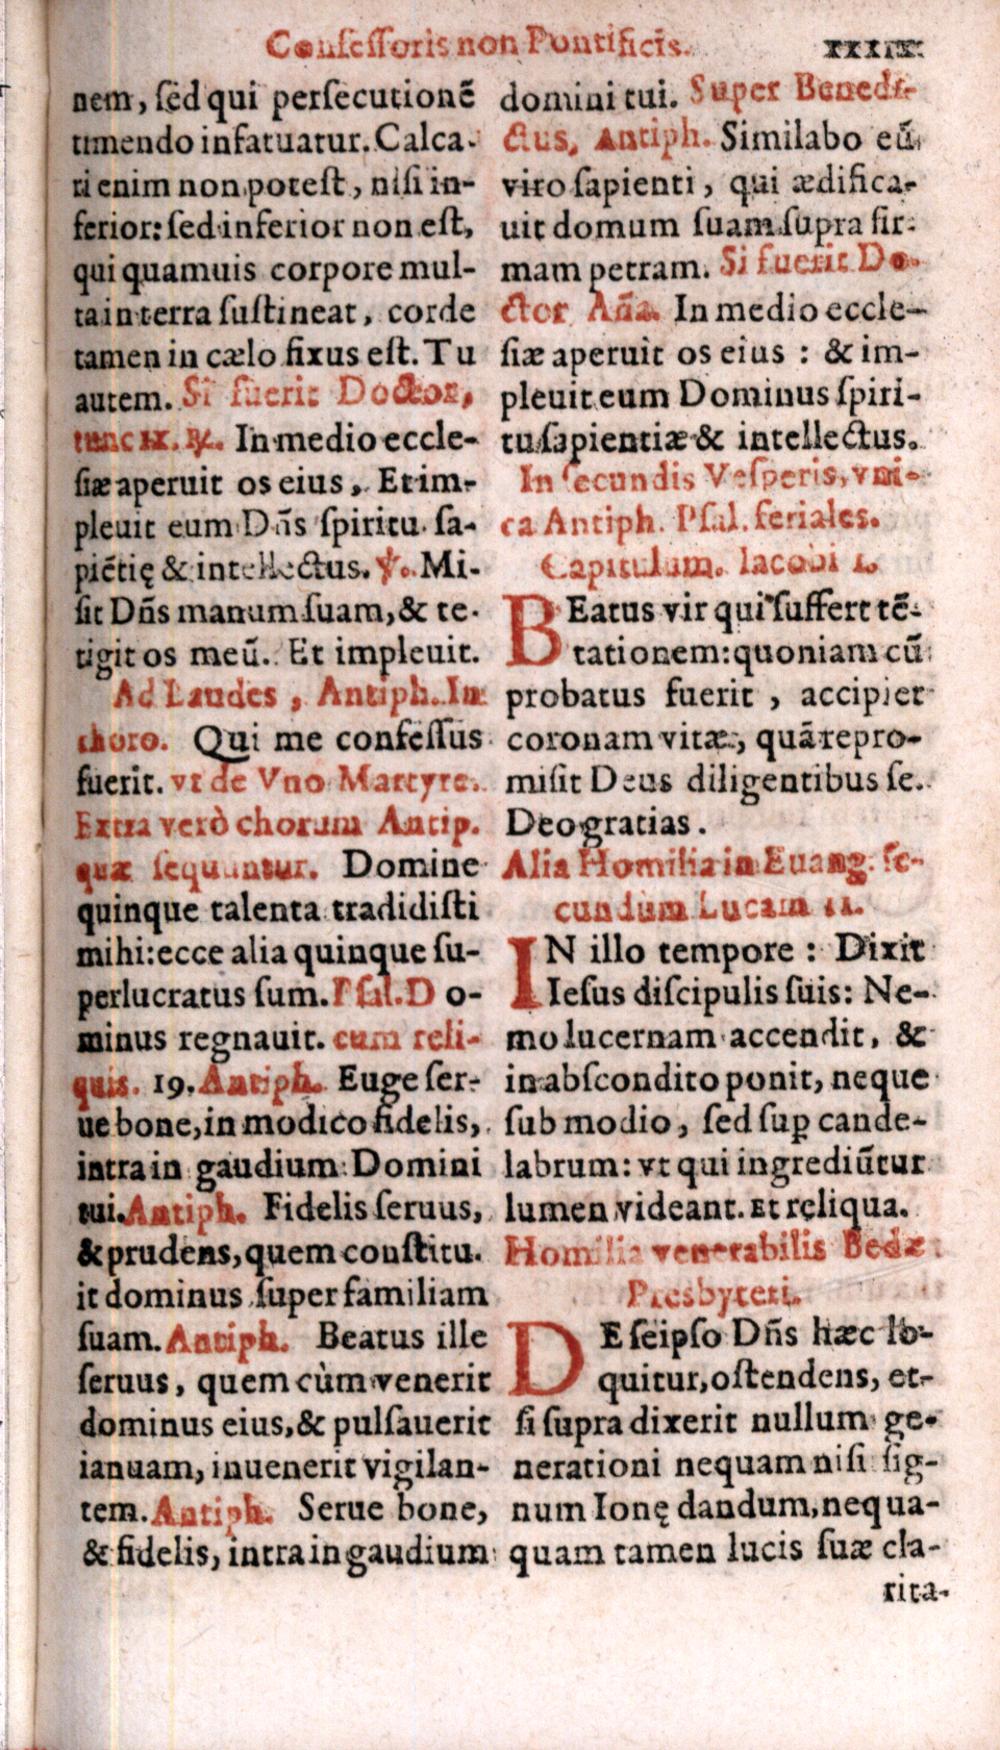 Confeſſoris non Pontificis. xxxix.
nem, ſed qui perſecutionē
timendo infatuatur. Calca-
ri enim non poteſt, niſi in-
ferior: ſed inferior non eſt,
qui quamuis corpore mul-
ta in terra ſuſtineat, corde
tamen in cælo fixus eſt. Tu
autem. Si fuerit Doctor,
tunc ix. ℟. In medio eccle-
ſiæ aperuit os eius, Et im-
pleuit eum Dñs ſpiritu ſa-
piētię & intellectus. ℣. Mi-
ſit Dñs manum ſuam, & te-
tigit os meū. Et impleuit.
Ad Laudes, Antiph. In
choro. Qui me confeſſus
fuerit. vt de Vno Martyre.
Extra verò chorum Antip.
quæ ſequuntur. Domine
quinque talenta tradidiſti
mihi: ecce alia quinque ſu-
perlucratus ſum. Pſal. Do-
minus regnauit. cum reli-
quis. 19. Antiph. Euge ſer-
ue bone, in modico fidelis,
intra in gaudium Domini
tui. Antiph. Fidelis ſeruus,
& prudens, quem conſtitu-
it dominus ſuper familiam
ſuam. Antiph. Beatus ille
ſeruus, quem cùm venerit
dominus eius, & pulſauerit
ianuam, inuenerit vigilan-
tem. Antiph. Serue bone,
& fidelis, intra in gaudium
domini tui. Super Benedi-
ctus, Antiph. Similabo eū
viro ſapienti, qui ædifica-
uit domum ſuam ſupra fir-
mam petram. Si fuerit Do-
ctor Aña. In medio eccle-
ſiæ aperuit os eius : & im-
pleuit eum Dominus ſpiri-
tu ſapientiæ & intellectus.
In ſecundis Veſperis, vni-
ca Antiph. Pſal. feriales.
Capitulum. Iacobi 1.
BEatus vir qui ſuffert tē-
tationem: quoniam cū
probatus fuerit, accipiet
coronam vitæ, quā repro-
miſit Deus diligentibus ſe.
Deo gratias.
Alia Homilia in Euang. ſe-
cundum Lucam 11.
IN illo tempore : Dixit
Ieſus diſcipulis ſuis: Ne-
mo lucernam accendit, &
in abſcondito ponit, neque
ſub modio, ſed suꝑ cande-
labrum: vt qui ingrediūtur
lumen videant. Et reliqua.
Homilia venerabilis Bedæ
Presbyteri.
DE ſeipſo Dñs hæc lo-
quitur, oſtendens, et-
ſi ſupra dixerit nullum ge-
nerationi nequam niſi ſig-
num Ionę dandum, nequa-
quam tamen lucis ſuæ cla-
rita-